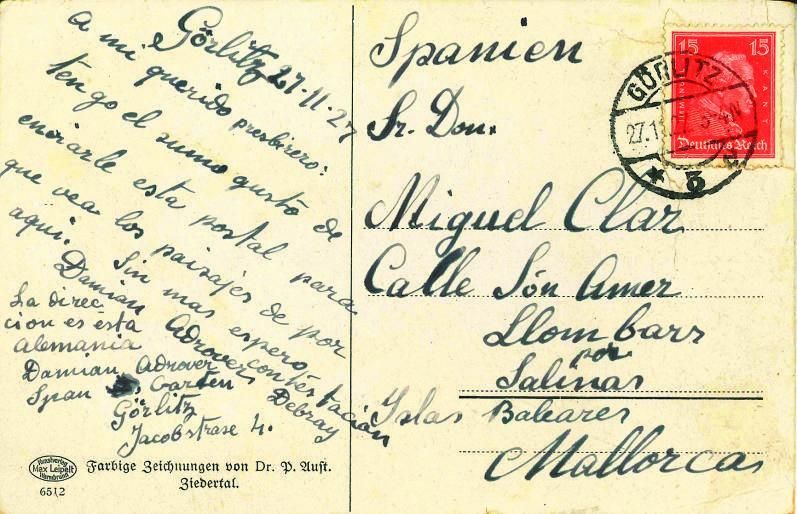 Görlitz 27-11-27
A mi querido presbirero:
tengo el sumo gusto de
enviarle esta postal para
que vea los paisajes de por
aqui. Sin mas espero
contéstacián
Damian Adrover Debray
La direc
cion es ésta
Alemania
Damian Adrover
Span Garten
Görlitz
Jacobstrase 4.
Max Leipelt
6512
Farbige Zeichnungen von Dr. P. Aust.
Ziedertal.
Spanien
Sr. Don.
Miguel Clar
Calle Són Amer
Llombarr
por
Salinas
Islas Baleares
Mallorca
15 15
KANT
Deutsches Reich
GÖRLITZ
27.11
* 3